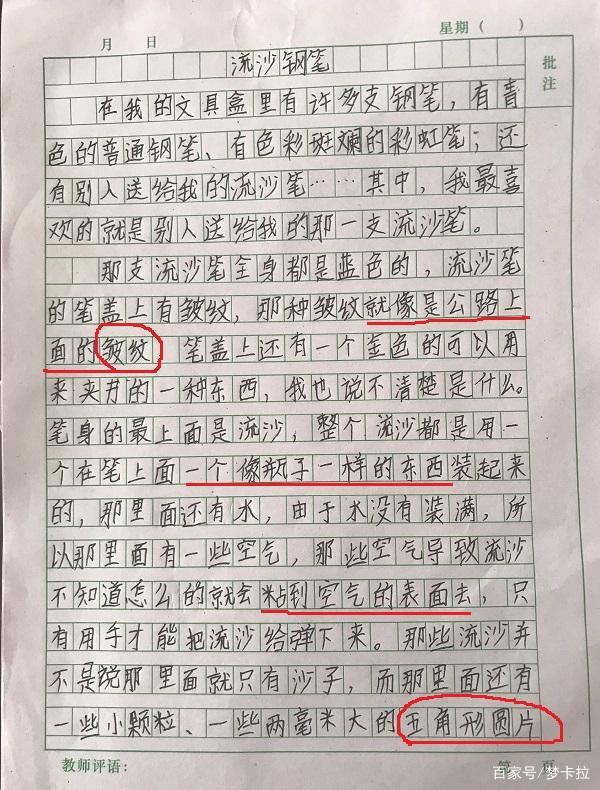 月 日 星期（ ）
流沙钢笔
批注
在我的文具盒里有许多支钢笔，有青
色的普通钢笔、有色彩斑斓的彩虹笔；还
有别人送给我的流沙笔……其中，我最喜
欢的就是别人送给我的那一支流沙笔。
那支流沙笔全身都是蓝色的，流沙笔
的笔盖上有皱纹，那种皱纹就像是公路上
面的皱纹 笔盖上还有一个金色的可以用
来夹书的一种东西，我也说不清楚是什么。
笔身的最上面是流沙，整个流沙都是用一
个在笔上面一个像瓶子一样的东西装起来
的，那里面还有水，由于水没有装满，所
以那里面有一些空气，那些空气导致流沙
不知道怎么的就会粘到空气的表面去，只
有用手才能把流沙给弹下来。那些流沙并
不是说那里面就只有沙子，而那里面还有
一些小颗粒、一些两毫米大的五角形圆片
教师评语： 第 页
百家号/梦卡拉